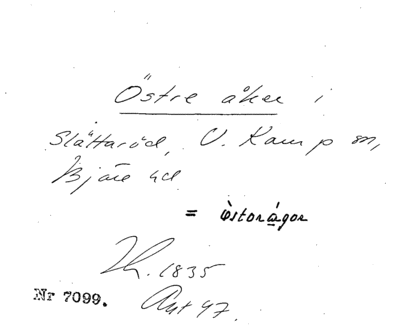 Östre åker i
Slättaröd, V. Karup sn,
Bjäre hd
= èstorágor
Lh. 1835
Nr 7099. Akt 47.